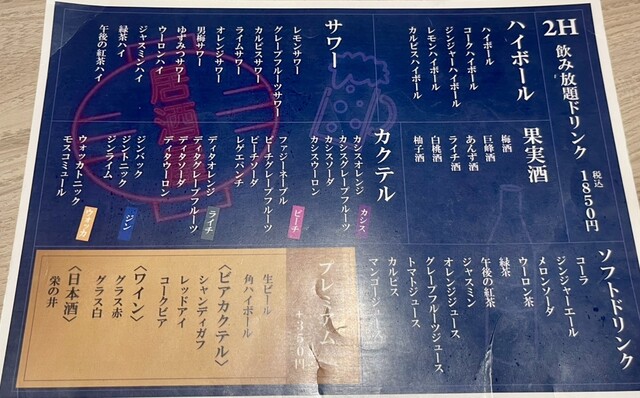 2H 飲み放題ドリンク 税込 1850円
ハイボール
ハイボール
コークハイボール
ジンジャーハイボール
レモンハイボール
カルピスハイボール
サワー
レモンサワー
グレープフルーツサワー
カルピスサワー
ライムサワー
オレンジサワー
男梅サワー
ゆずみつサワー
ウーロンハイ
ジャスミンハイ
緑茶ハイ
午後の紅茶ハイ
居酒
果実酒
梅酒
巨峰酒
あんず酒
ライチ酒
白桃酒
柚子酒
カクテル
カシス
カシスオレンジ
カシスグレープフルーツ
カシスソーダ
カシスウーロン
ピーチ
ファジーネーブル
ピーチグレープフルーツ
ピーチソーダ
レゲエパンチ
ライチ
ディタオレンジ
ディタグレープフルーツ
ディタソーダ
ディタウーロン
ジン
ジンバック
ジントニック
ジンライム
ウォッカ
ウォッカトニック
モスコミュール
ソフトドリンク
コーラ
ジンジャーエール
メロンソーダ
ウーロン茶
緑茶
午後の紅茶
ジャスミン
オレンジジュース
グレープフルーツジュース
トマトジュース
カルピス
マンゴージュース
プレミアム +350円
生ビール
角ハイボール
〈ビアカクテル〉
シャンディガフ
レッドアイ
コークビア
〈ワイン〉
グラス赤
グラス白
〈日本酒〉
栄の井